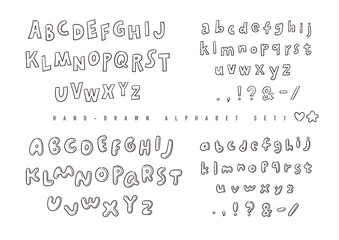 ABCDEFGHIJ
KLMNOPQRST
UVWXYZ
abcdefghij
klmnopqrst
uvwxyz
.,!?&-/
HAND-DRAWN ALPHABET SET!
ABCDEFGHIJ
KLMNOPQRST
UVWXYZ
abcdefghij
klmnopqrst
uvwxyz
.,!?&-/